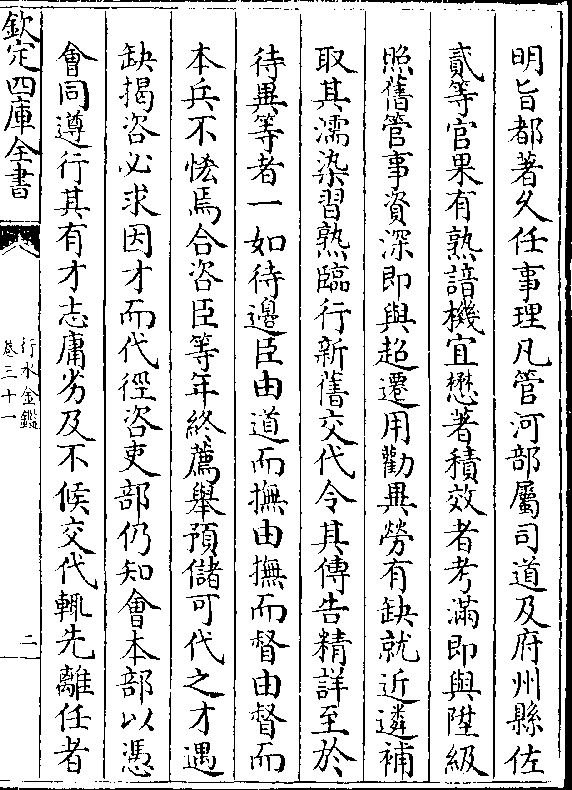 明旨都著久任事理凡管河部屬司道及府州縣佐
貳等官果有熟諳機宜懋著積效者考滿即與陞級
照舊管事資深即與超遷用勸異勞有缺就近遴補
取其濡染習熟臨行新舊交代令其傳告精詳至於
待異等者一如待邊臣由道而撫由撫而督由督而
本兵不恡焉合咨臣等年終薦舉預儲可代之才遇
缺揭咨必求因才而代徑咨吏部仍知會本部以憑
會同遵行其有才志庸劣及不候交代輒先離任者
欽定四庫全書
行水金鑑
卷三十一
二